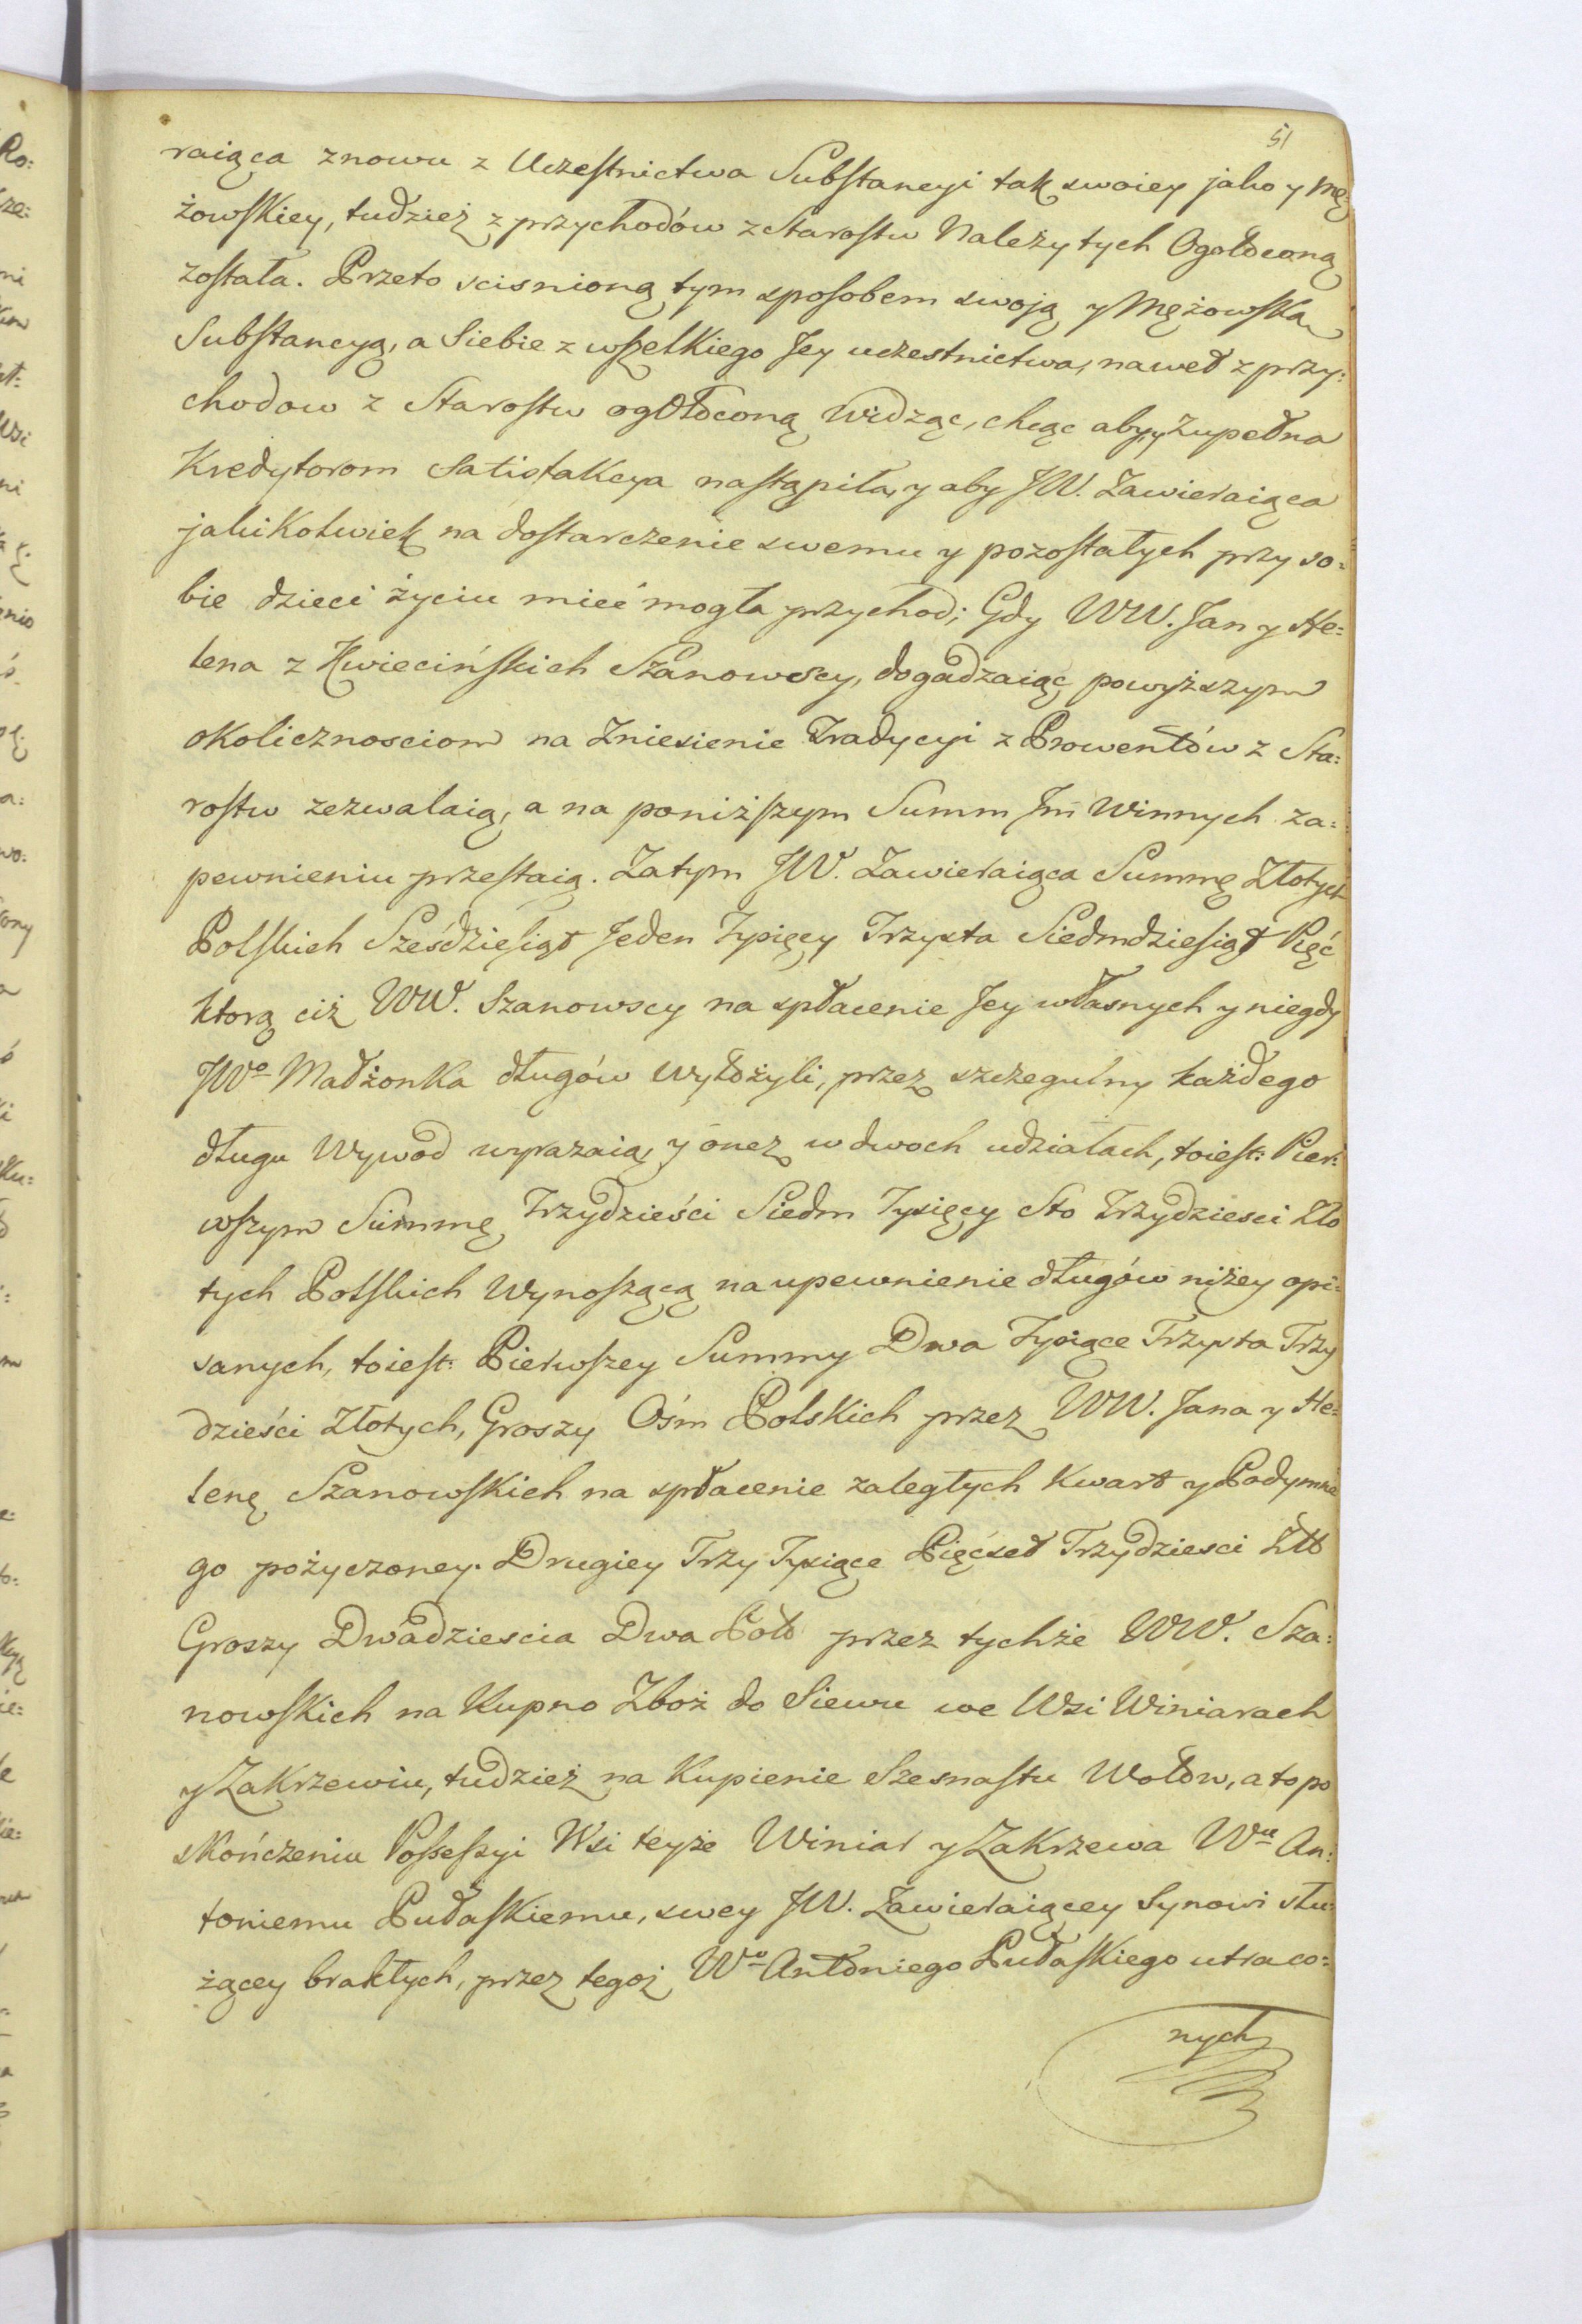 51
raiąca znowu z Uczestnictwa Substancyi tak swoiey jako y Mę
żowskiey, tudzież z przychodów z Starostw Należytych Ogołoconą
została. Przeto scisnioną tym sposobem swoią y Mężowską
Substancyą, a Siebie z wszelkiego Jey uczestnictwa, nawet z przy:
chodow z Starostw ogołoconą widząc, chcąc aby y Zupełna
Kredytorom Satisfakcya nastąpiła, y aby JW. Zawieraiąca
jakikolwiek na dostarczenie swemu y pozostałych przy so:
bie dzieci życiu mieć mogła przychod; Gdy WW. Jan y He:
lena z Kwiecińskich Szanowscy, dogadzaiąc powyższym
okolicznosciom na Zniesienie Tradycyi z Prowentów z Sta:
rostw zezwalaią, a na poniższym Summ Im Winnych za:
pewnieniu przestaią. Zatym JW. Zawieraiąca Summę Złotych
Polskich Sześdziesiąt Jeden Tysięcy Trzysta Siedmdziesiąt Pięć
ktorą ciż WW. Szanowscy na spłacenie Jey własnych y niegdy
JWo Małżonka długów wyłożyli, przez szczegulny każdego
długu Wywod wyrazaią, y onez w dwoch udziałach, toiest: Pier:
wszym Summę Trzydzieści Siedm Tysięcy Sto Trzydziesci Zło
tych Polskich Wynoszącą na upewnienie długów niżey opi:
sanych, toiest: Pierwszey Summy Dwa Tysiące Trzysta Trzy
dzieści Złotych, Groszy Ośm Polskich przez WW. Jana y He:
lenę Szanowskich na spłacenie zaległych Kwart y Podymne
go pożyczoney. Drugiey Trzy Tysiące Pięćset Trzydziesci Złt
Groszy Dwadziescia Dwa Pols przez tychże WW. Sza:
nowskich na Kupno Zboż do Siewu we Wsi Winiarach
y Zakrzewiu, tudzież na Kupienie Szesnastu Wołów, a to po
skończeniu Possessyi Wsi teyże Winiar y Zakrzewa Wu An:
toniemu Pułaskiemu, swey JW. Zawieraiącey Synowi słu
żącey brakłych, przez tegoż Wo Antoniego Pułaskiego utraco:
nych